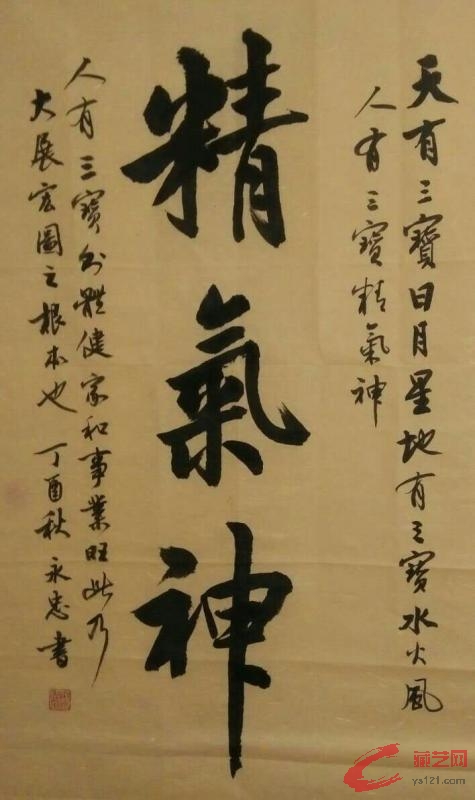 天有三寶日月星地有三寶水火風
人有三寶精氣神
精氣神
人有三寶則體健家和事業旺此乃
大展宏圖之根本也 丁酉秋 永忠書
藏艺网
ys121.com